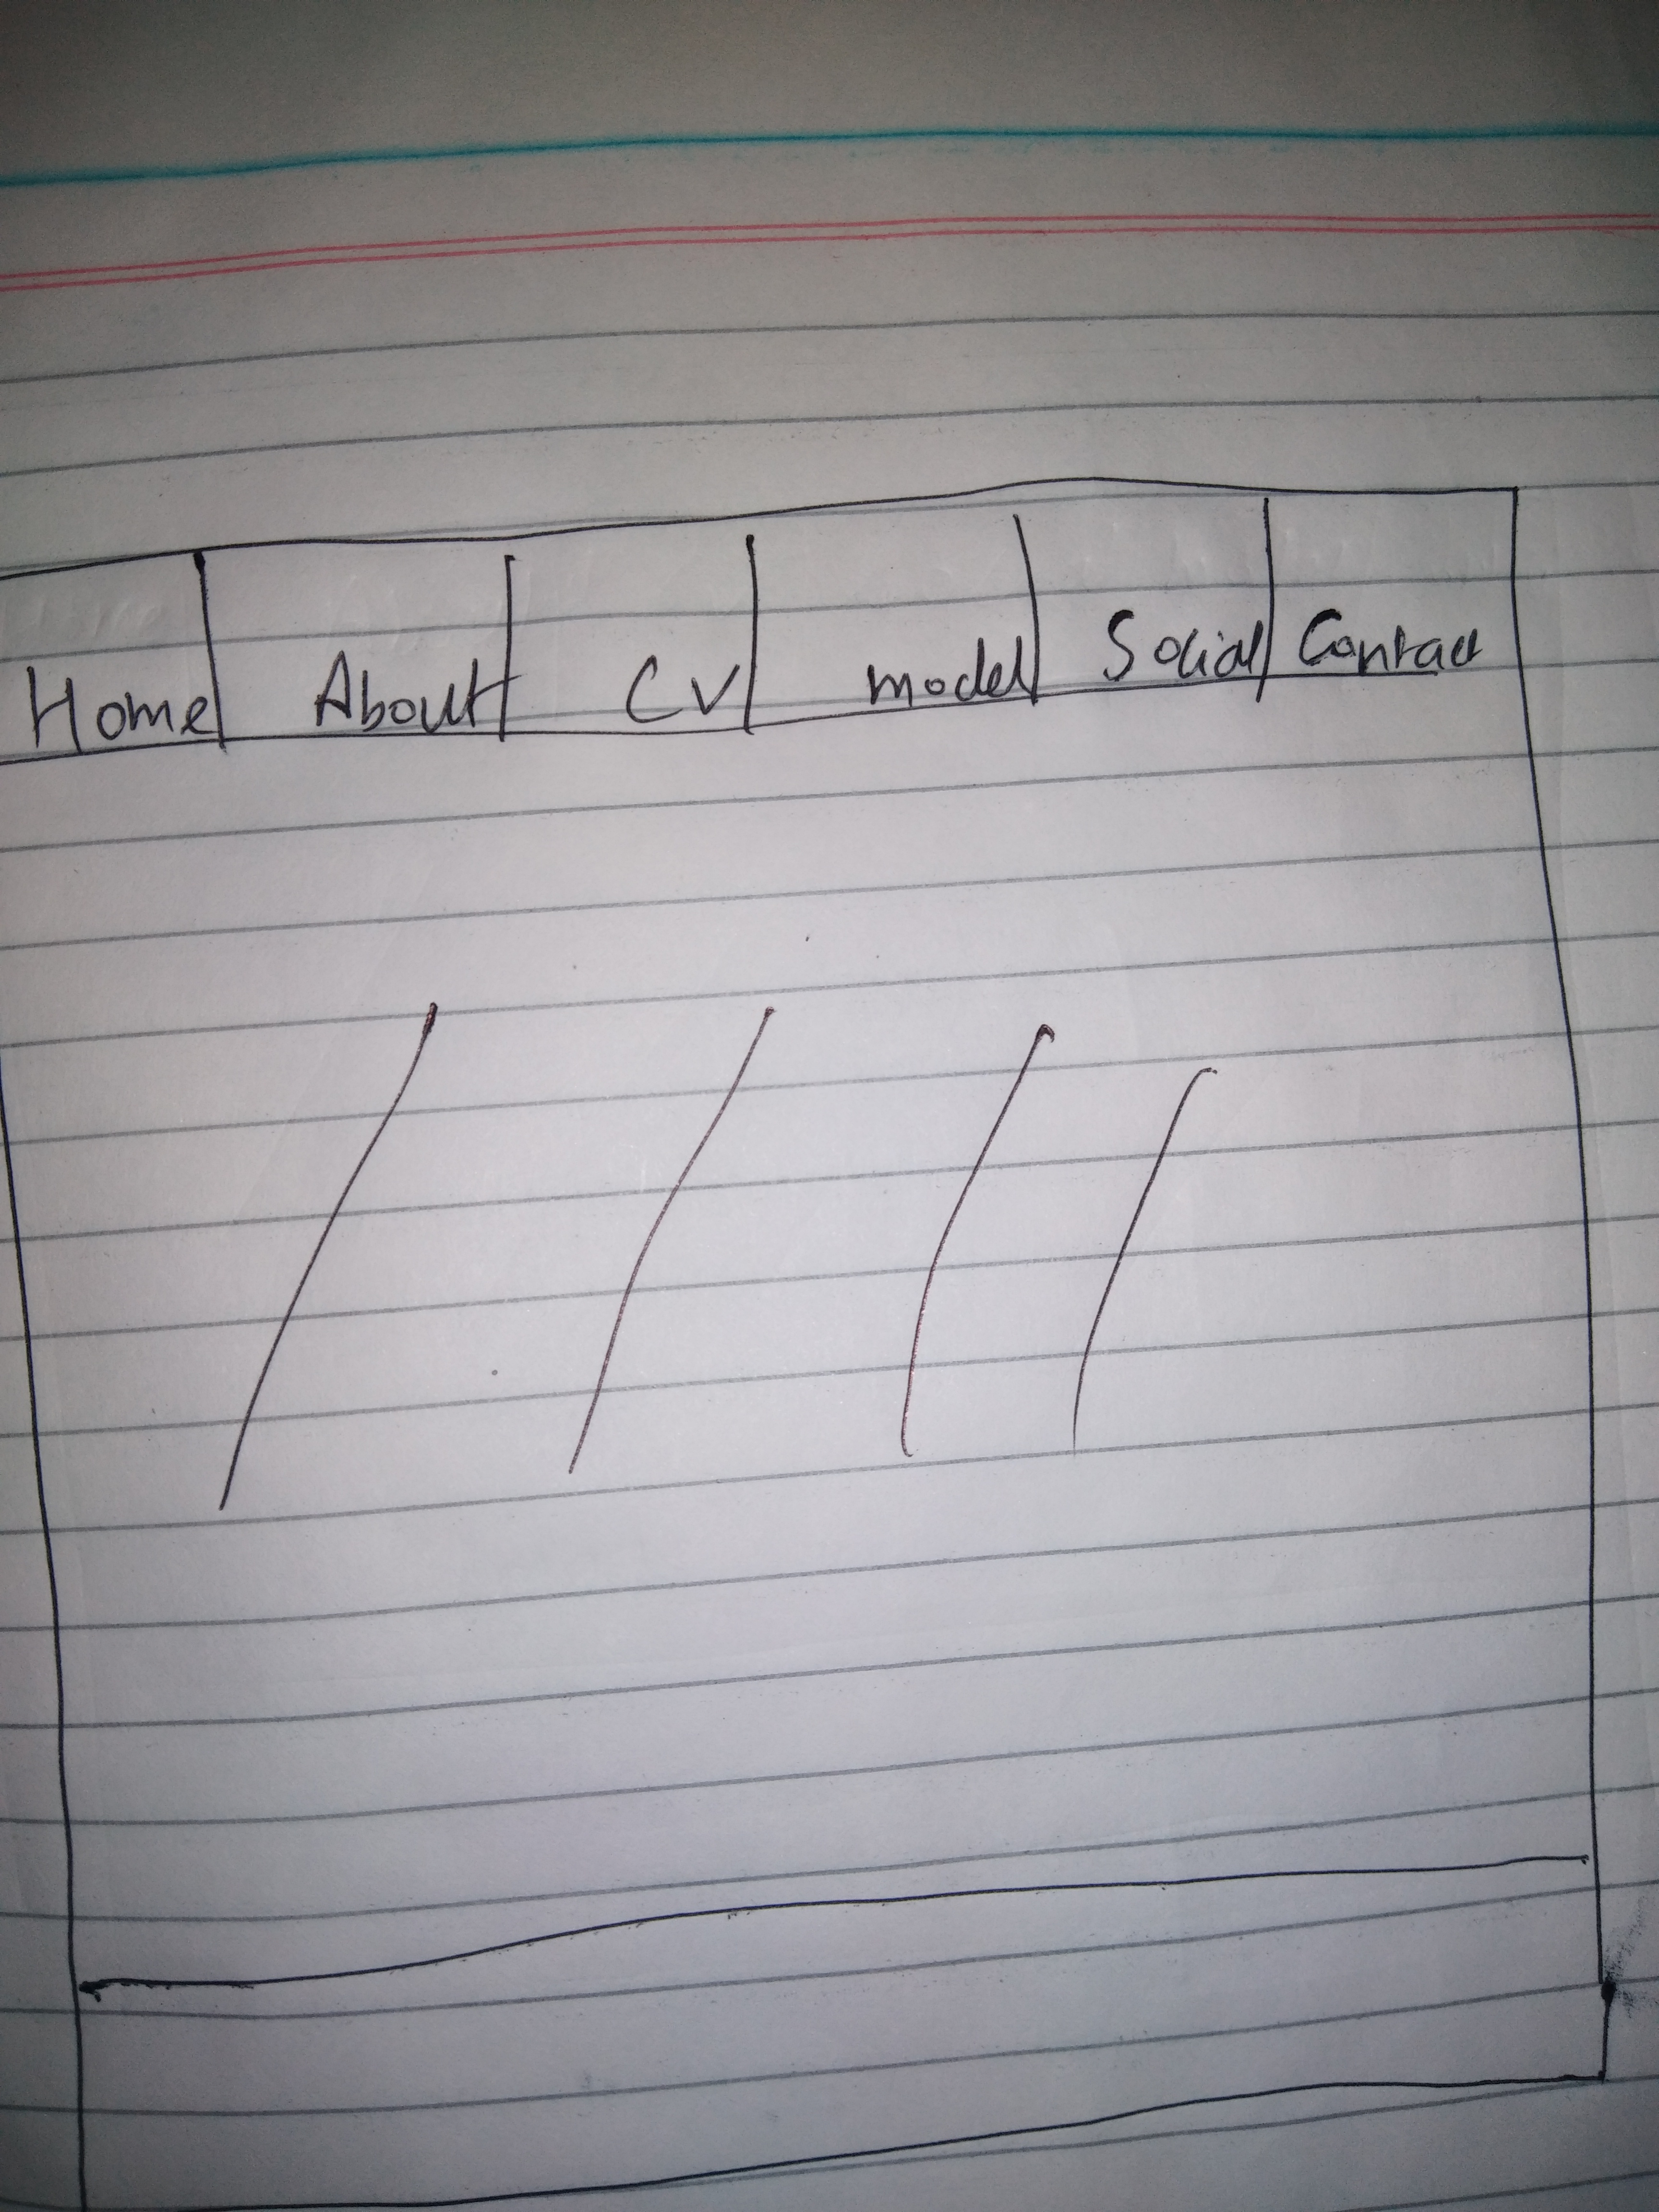 Home About CV model Social Contact